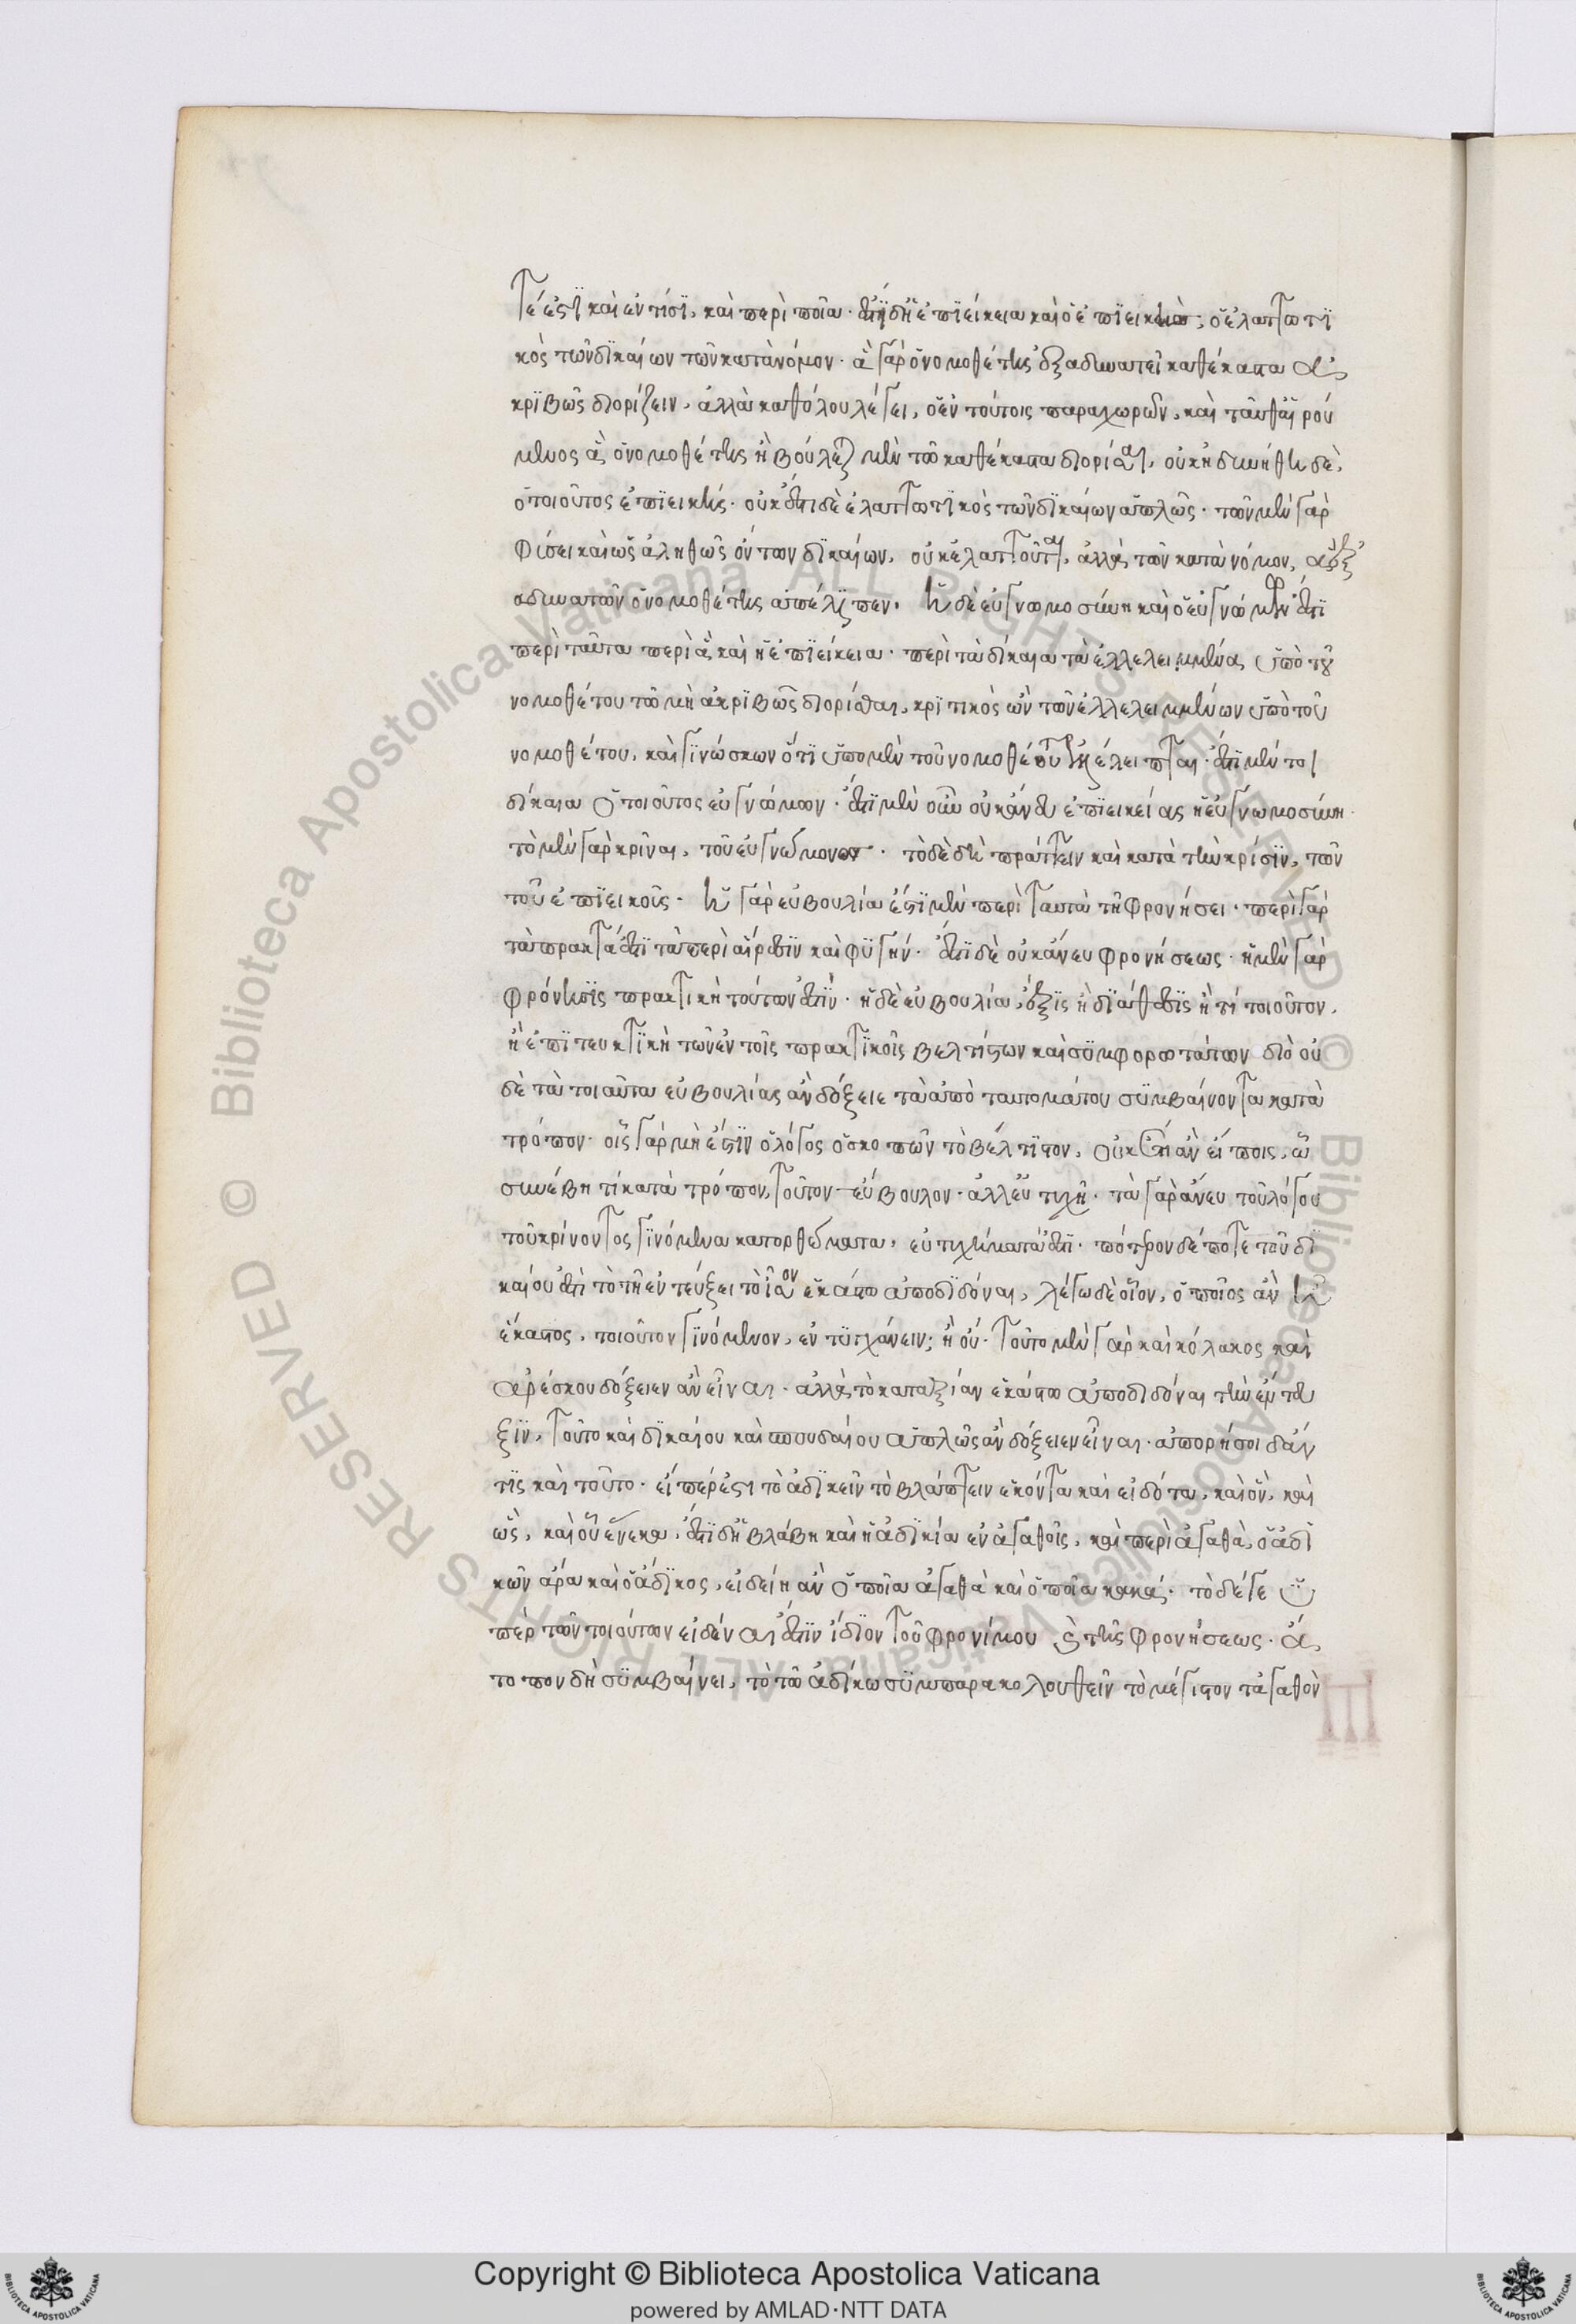 τέ ἐστι καὶ ἐν τίσι, καὶ περὶ ποῖα· ἔστι δὲ ἡ ἐπιείκεια καὶ ὁ ἐπιεικὴς, ὁ ἐλαττωτι
κὸς τῶν δικαίων τῶν κατὰ νόμον· ἃ γὰρ ὁ νομοθέτης ἐξαδυνατεῖ καθ' ἕκαστα ἀ
κριβῶς διορίζειν, ἀλλὰ καθόλου λέγει, ὁ ἐν τούτοις παραχωρῶν, καὶ ταῦθ' αἱρού
μενος ἃ ὁ νομοθέτης ἠβούλετο μὲν τῶ καθ' ἕκαστα διορίσαι, οὐκ ἠδυνήθη δὲ,
ὁ τοιοῦτος ἐπιεικής· οὐκ ἔστι δὲ ἐλαττωτικὸς τῶν δικαίων ἁπλῶς· τῶν μὲν γὰρ
φύσει καὶ ὡς ἀληθῶς ὄντων δικαίων, οὐκ ἐλαττοῦται, ἀλλὰ τῶν κατὰ νόμον, ἃ ἐξ
αδυνατῶν ὁ νομοθέτης ἀπέλιπεν· ἡ δὲ εὐγνωμοσύνη καὶ ὁ εὐγνώμων ἐστὶ
περὶ ταῦτα περὶ ἃ καὶ ἡ ἐπιείκεια· περὶ τὰ δίκαια τὰ ἐλλελειμμένα ὑπὸ τοῦ
νομοθέτου τῶ μὴ ἀκριβῶς διορίσθαι, κριτικὸς ὢν τῶν ἐλλελειμμένων ὑπὸ τοῦ
νομοθέτου, καὶ γινώσκων ὅτι ὑπὸ μὲν τοῦ νομοθέτου ἐκλέλειπται· ἔστι μέντοι
δίκαια ὁ τοιοῦτος εὐγνώμων· ἔστι μὲν οὖν οὐκ ἄνευ ἐπιεικείας ἡ εὐγνωμοσύνη·
τὸ μὲν γὰρ κρῖναι, τοῦ εὐγνώμονος· τὸ δὲ δὴ πράττειν καὶ κατὰ τὴν κρίσιν, τῶν
τοῦ ἐπιεικοῖς· ἡ γὰρ εὐβουλία ἐστὶ μὲν περὶ ταυτὰ τῆ φρονήσει· περὶ γὰρ
τὰ πρακτά ἐστι τὰ περὶ αἵρεσιν καὶ φυγήν· ἔστι δὲ οὐκ ἄνευ φρονήσεως· ἡ μὲν γὰρ
φρόνησις πρακτικὴ τούτων ἐστίν· ἡ δὲ εὐβουλία, ἕξις ἢ διάθεσις ἤ τι τοιοῦτον,
ἡ ἐπιτευκτικὴ τῶν ἐν τοῖς πρακτικοῖς βελτίστων καὶ συμφορωτάτων διὸ οὐ
δὲ τὰ τοιαῦτα εὐβουλίας ἂν δόξειε τὰ ἀπὸ ταυτομάτου συμβαίνοντα κατὰ
τρόπον· οἷς γὰρ μή ἐστιν ὁ λόγος ὁ σκοπῶν τὸ βέλτιστον, οὐκ ἔτι ἂν εἴποις, ᾧ
συνέβη τι κατὰ τρόπον, τοῦτον εὔβουλον· ἀλλ' εὐτυχῆ· τὰ γὰρ ἄνευ τοῦ λόγου
τοῦ κρίνοντος γινόμενα κατορθώματα, εὐτυχήματά ἐστι· πότερον δέ ποτε τοῦ δι
καίου ἐστὶ τὸ τῆ ἐντεύξει τὸ ἴσον ἑκάστω ἀποδιδόναι, λέγω δὲ οἷον, ὁποῖος ἂν ᾖ
ἕκαστος, τοιοῦτον γινόμενον, ἐντυγχάνειν; ἢ οὔ· τοῦτο μὲν γὰρ καὶ κόλακος καὶ
ἀρέσκου δόξειεν ἂν εἶναι· ἀλλὰ τὸ κατ' ἀξίαν ἑκάστω ἀποδιδόναι τὴν ἔντευ
ξιν, τοῦτο καὶ δικαίου καὶ σπουδαίου ἁπλῶς ἂν δόξειεν εἶναι· ἀπορήσοι δ' ἄν
τις καὶ τοῦτο· εἴπερ ἐστὶ τὸ ἀδικεῖν τὸ βλάπτειν ἑκόντα καὶ εἰδότα, καὶ ὃν, καὶ
ὡς, καὶ οὗ ἕνεκα, ἔστι δὲ ἡ βλάβη καὶ ἡ ἀδικία ἐν ἀγαθοῖς, καὶ περὶ ἀγαθὰ, ὁ ἀδι
κῶν ἄρα καὶ ὁ ἄδικος, εἰδείη ἂν ὁποῖα ἀγαθὰ καὶ ὁποῖα κακά· τὸ δέ γε ὑ
πὲρ τῶν τοιούτων εἰδέναι ἐστὶν ἴδιον τοῦ φρονίμου καὶ τῆς φρονήσεως· ἄ
τοπον δὴ συμβαίνει, τὸ τῶ ἀδίκω συμπαρακολουθεῖν τὸ μέγιστον τἀγαθὸν
© Biblioteca Apostolica Vaticana ALL RIGHTS RESERVED
Copyright © Biblioteca Apostolica Vaticana
powered by AMLAD·NTT DATA